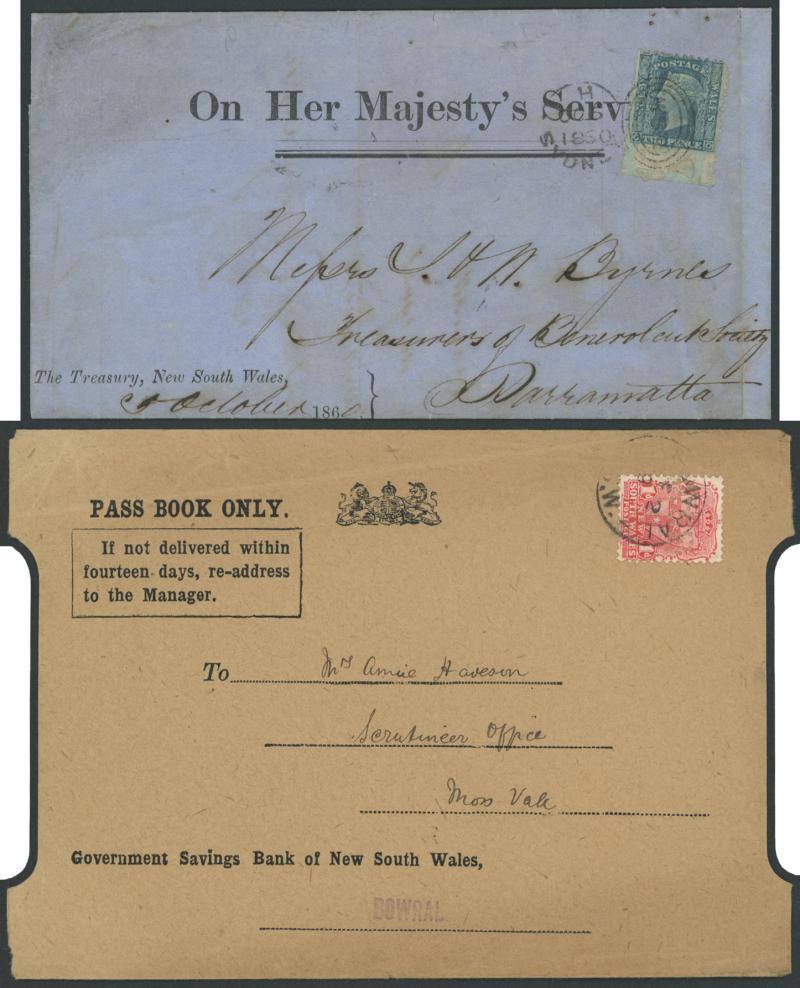 On Her Majesty's Serv
POSTAGE
WALES
TWO PENCE
SYDNEY
1860
Messrs J. & W. Byrnes
Treasurers of Benevolent Society
Parramatta
The Treasury, New South Wales,
October 1860
PASS BOOK ONLY.
If not delivered within
fourteen days, re-address
to the Manager.
SOUTH WALES
1d
WRAL
To Mrs Amie Haveson
Scrutineer Office
Moss Vale
Government Savings Bank of New South Wales,
BOWRAL